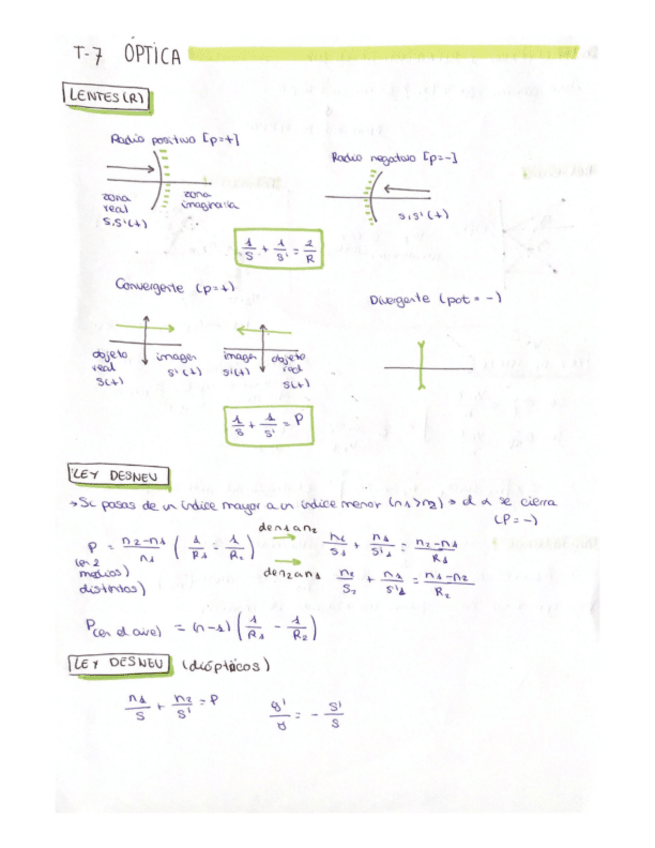 T-7 ÓPTICA
LENTES (R)
Radio positivo [p=+]
Radio negativo [p=-]
zona real S,S'(+)
zona imaginaria
S,S'(+)
1/S + 1/S' = 2/R
Convergente (p=+)
Divergente (pot = -)
objeto real S(+)
imagen S'(+)
imagen S'(+)
objeto real S(+)
1/S + 1/S' = P
LEY DESNEU
→ Si pasas de un índice mayor a un índice menor (n1>n2) → el α se cierra
(P=-)
P = n2-n1/n1 (1/R1 - 1/R2)
(en 2 medios) distintos)
de n1 a n2
n1/S1 + n2/S'1 = n2-n1/R1
de n2 a n1
n2/S2 + n1/S'2 = n1-n2/R2
P(en el aire) = (n-1) (1/R1 - 1/R2)
LEY DESNEU (dióptricos)
n1/S + n2/S' = P
y'/y = - S'/S